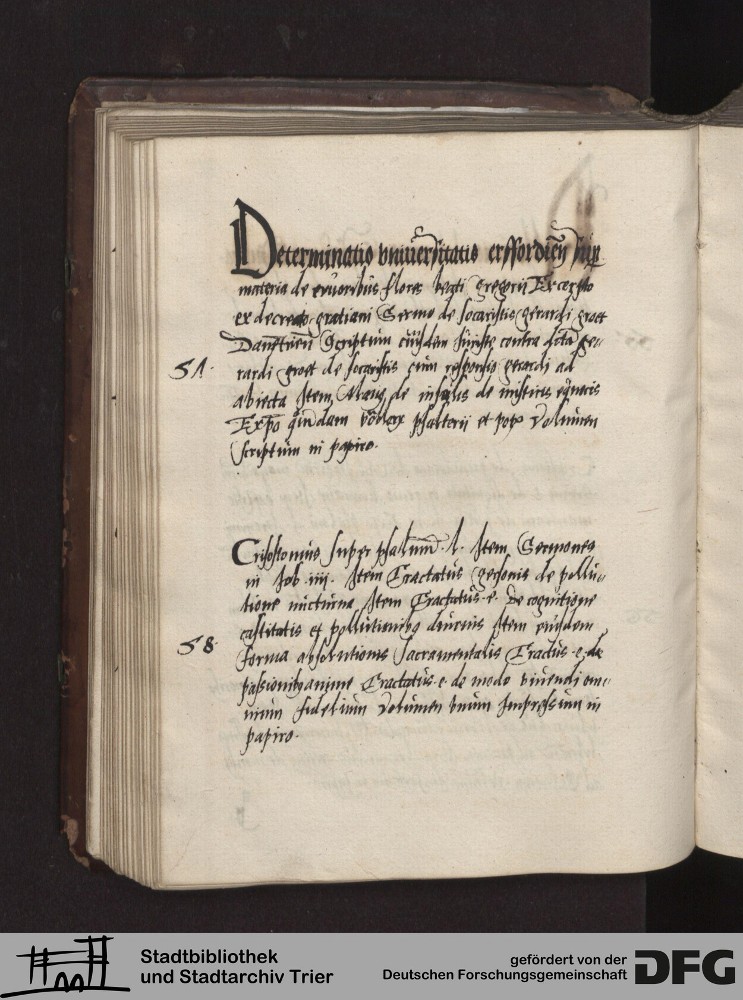 Determinatio vniuersitatis erffordien sup
materia de erroribus flores beati gregorii Excerpto
ex decreto gratiani Sermo de focaristis gerardi groet
Dauentrien Scriptum cuiusdam Juriste contra dicta ge-
51.
rardi groet de focaristis cum responsis gerardi ad
abiecta Item Alanus de
Expo quindam psalterii et Volumen
Scriptum in papiro.
Crisostomus super psalmum .l. Item Sermones
in Job .iiii. Item Tractatus gersonis de pollu-
tione nocturna Item Tractatus e. De cognitione
castitatis et pollutionibus diurnis Item eiusdem
58.
forma absolutionis sacramentalis Tractus .e. de
passionibus anime Tractatus .e. de modo viuendi om-
nium fidelium Volumen vnum Impressum in
papiro.
Stadtbibliothek
und Stadtarchiv Trier
gefördert von der
Deutschen Forschungsgemeinschaft
DFG